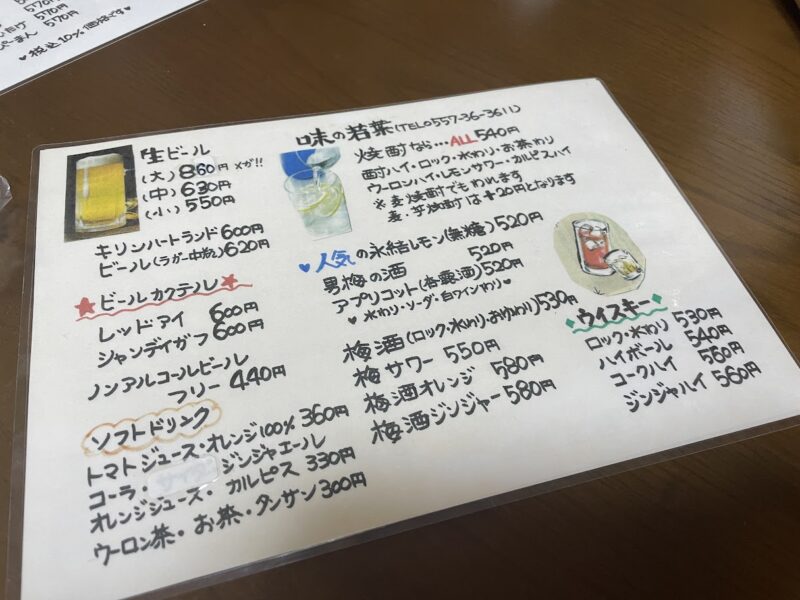 570円
570円
570円
♥税込10%価格です♥
味の若葉(TEL0557-36-3611)
生ビール
(大) 860円 メガ!!
(中) 630円
(小) 550円
キリンハートランド 600円
ビール(ラガー中瓶) 620円
★ビールカクテル★
レッドアイ 600円
シャンディガフ 600円
ノンアルコールビール
フリー 440円
ソフトドリンク
トマトジュース・オレンジ100% 360円
コーラ・ジンジャエール
オレンジジュース・カルピス 330円
ウーロン茶・お茶・タンサン 300円
焼酎なら…ALL540円
酎ハイ・ロック・水わり・お茶わり
ウーロンハイ・レモンサワー・カルピスハイ
※麦焼酎でもわれます
麦、芋焼酎は+20円となります
♥人気の氷結レモン(無糖) 520円
男梅の酒 520円
アプリコット(杏露酒) 520円
♥水わり・ソーダ・白ワインわり♥
梅酒(ロック・水わり・お湯わり) 530円
梅サワー 550円
梅酒オレンジ 580円
梅酒ジンジャー 580円
◆ウイスキー◆
ロック・水わり 530円
ハイボール 540円
コークハイ 560円
ジンジャハイ 560円